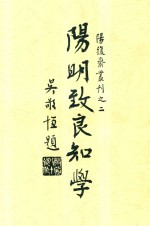 陽復齋叢刊之二
陽明致良知學
吳敬恒題